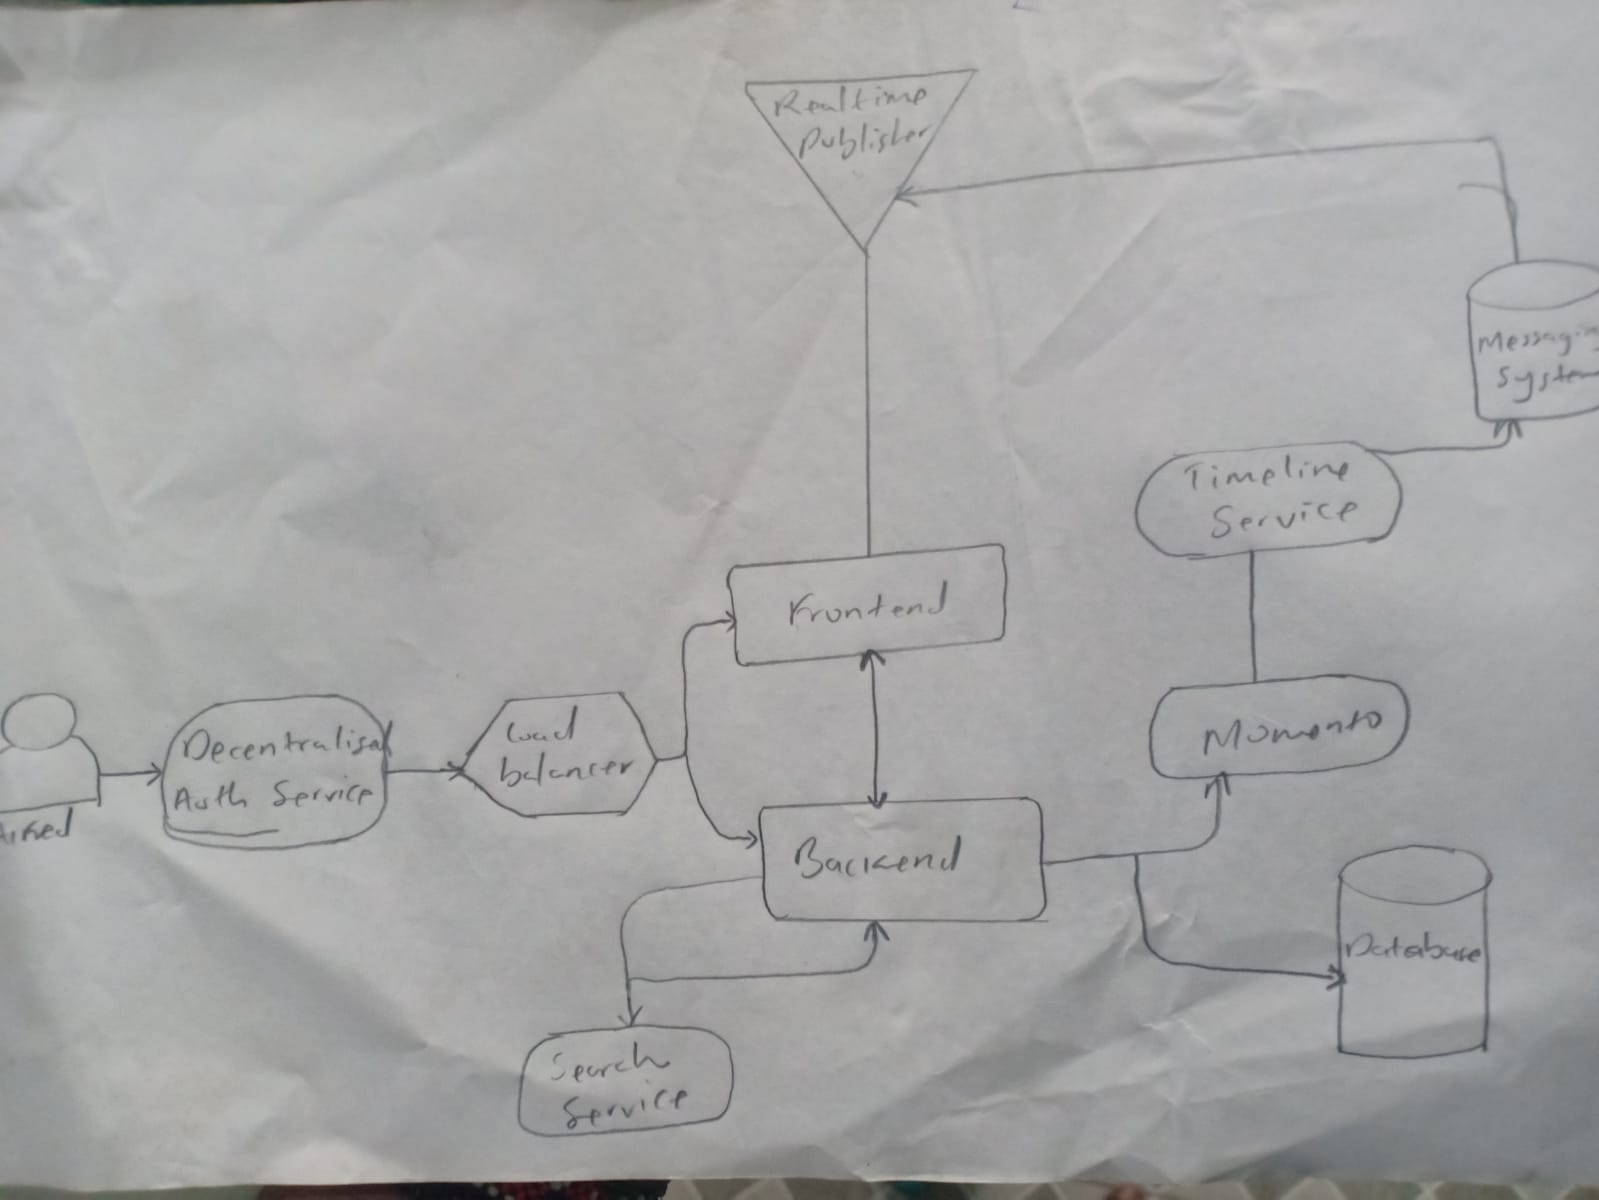 Realtime
Publisher
Messaging
System
Timeline
Service
Frontend
Momento
Decentralised
Auth Service
Load
balancer
Backend
Database
Search
Service